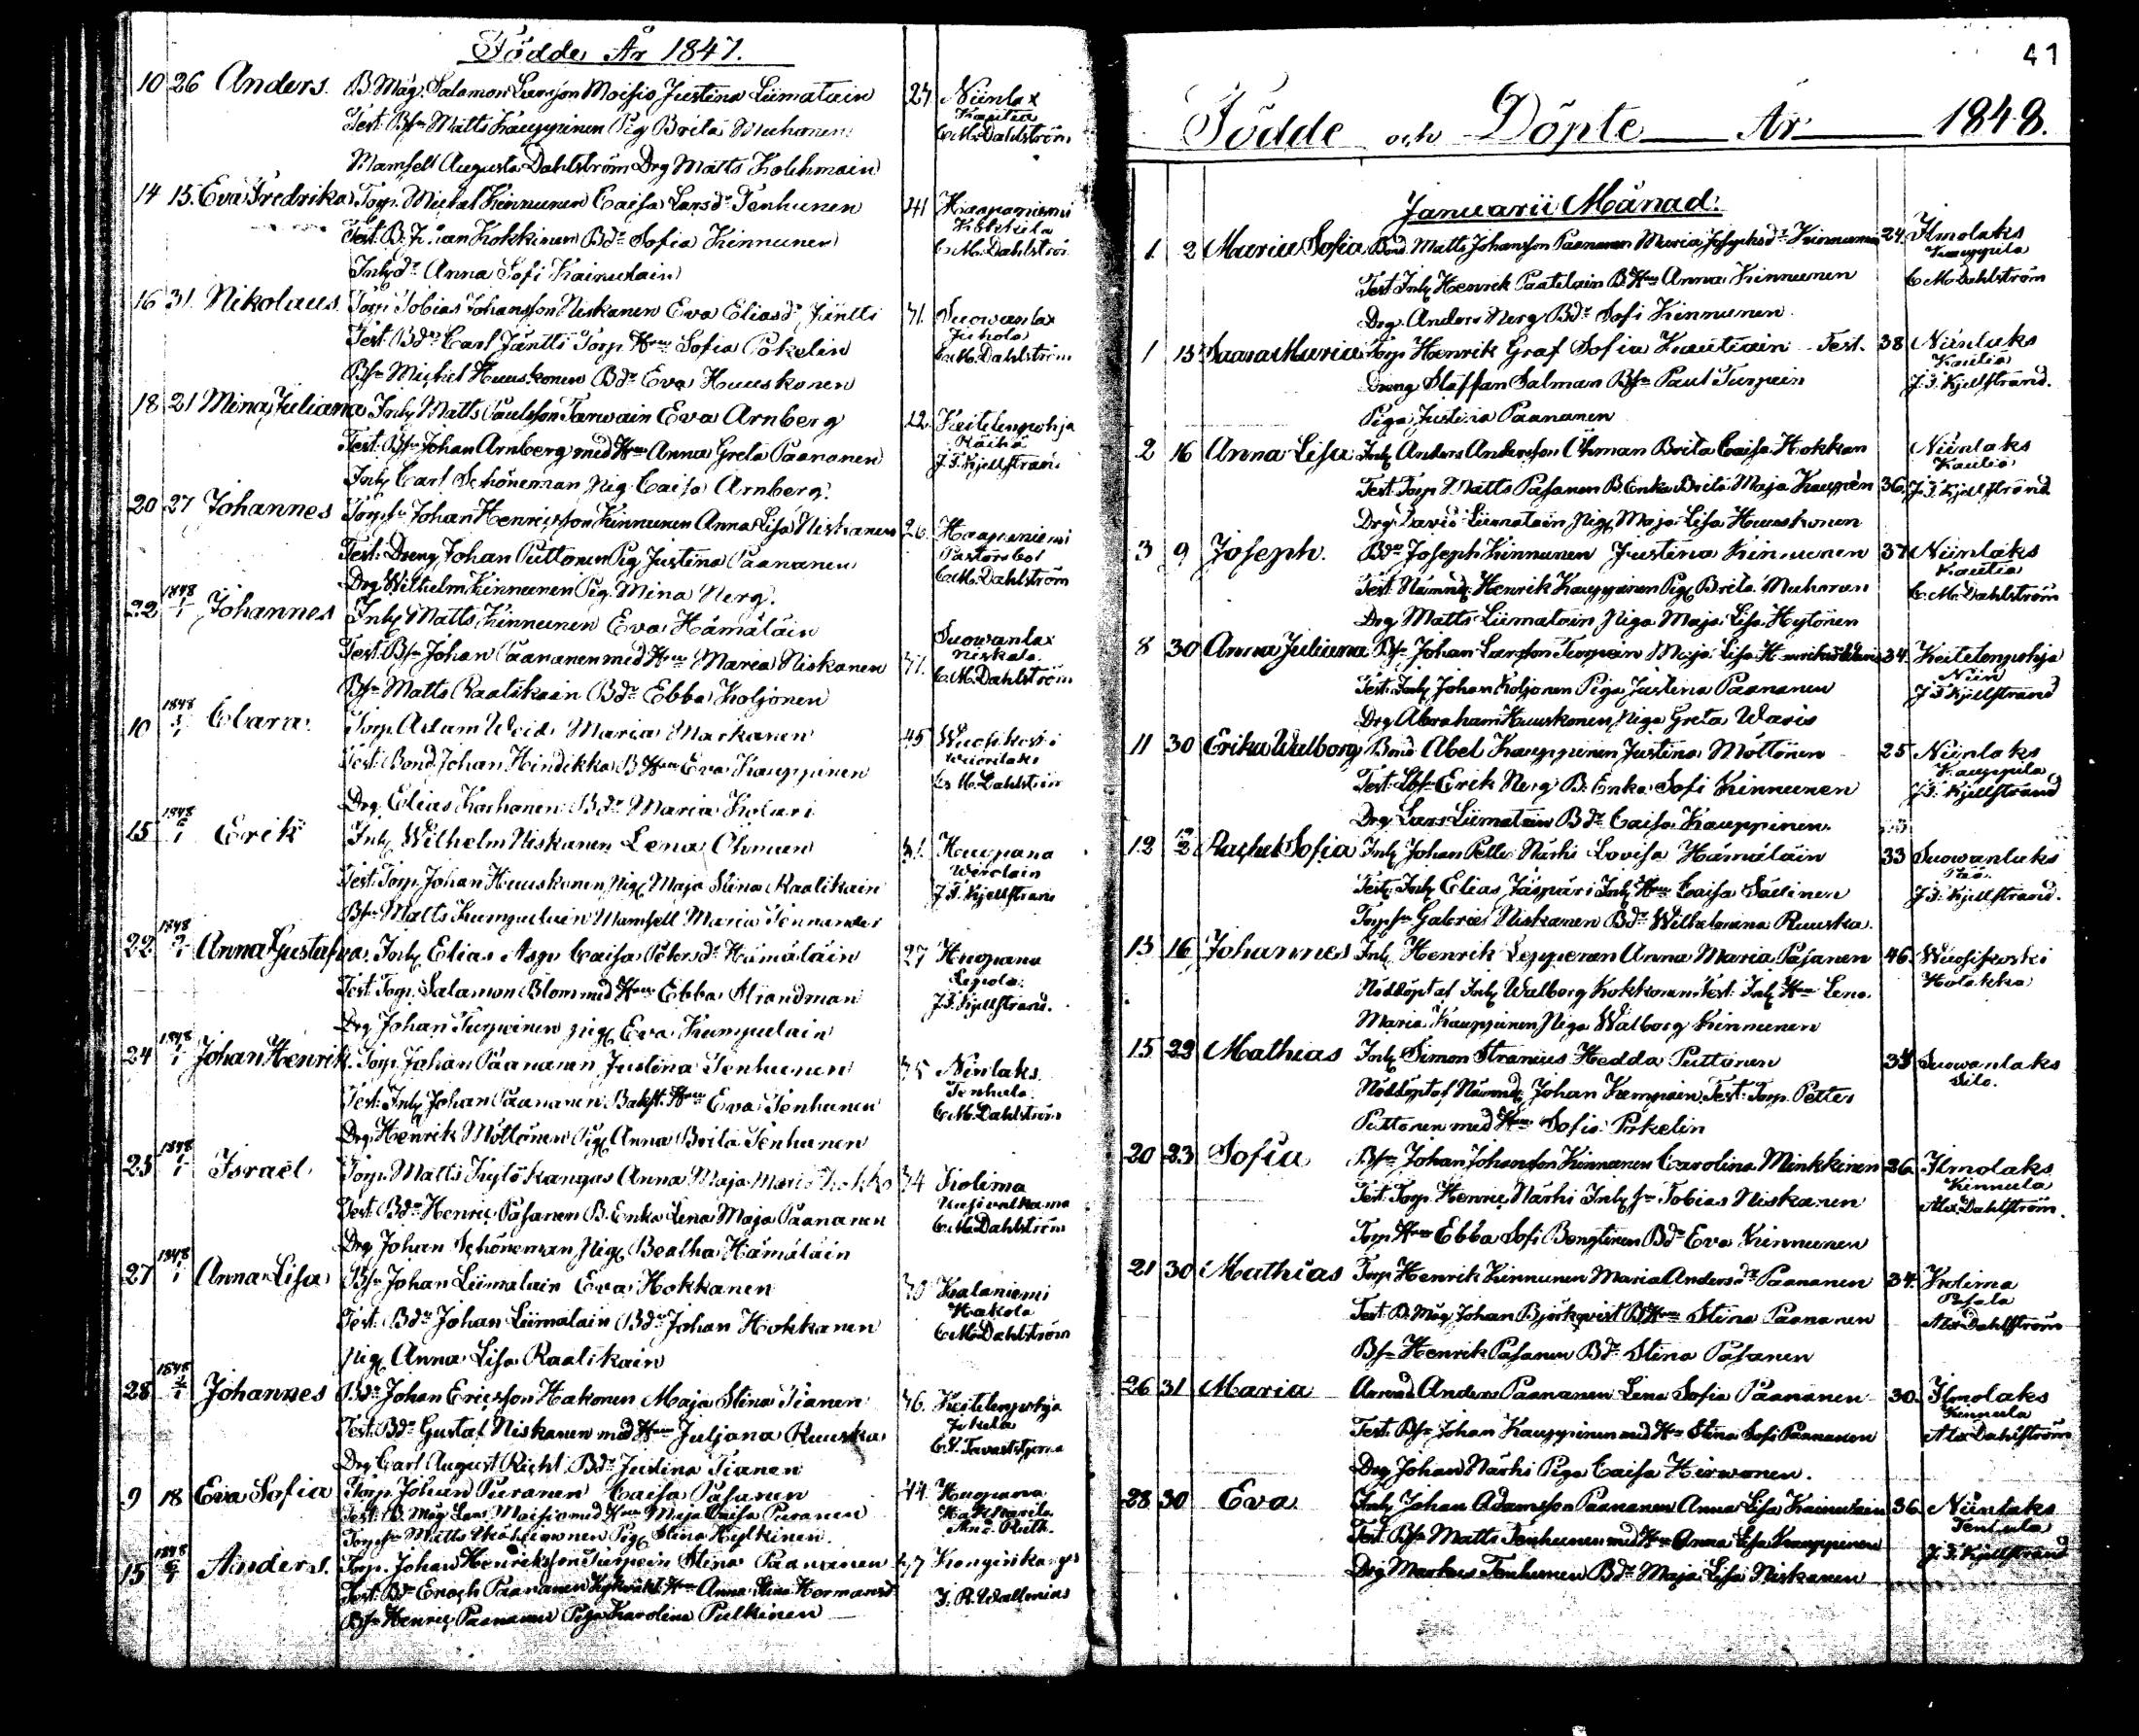 Födde År 1847.
10 26 Anders. B. Måg Salamon Larsson Moisio Justina Liimatain 27 Niinlax
Test. Bsn Matts Kauppinen Pig Brita Muhonen Kautia
Mamsell Augusta Dahlström Drg Matts Kolehmain C. M. Dahlström
14 15. Eva Fredrika Torp. Michel Kinnunen Caisa Larsdr Tenhunen 41 Haapaniemi
Test. B. Kokkinen Bdr Sofia Kinnunen
Inhdr Anna Sofi Kainulain C. M. Dahlström
16 31. Nikolaus. Torp Tobias Johansson Niskanen Eva Eliasdr Jäntti 31. Suowanlax
Test. Bdn Carl Jäntti Torp. Hru Sofia Pokelin Juhola
Bsn Michel Huuskonen Bdr Eva Huuskonen C. M. Dahlström
18 21 Mina Juliana Inh Matts Paulsson Tarwain Eva Arnberg 22. Keitelenpohja
Test. Bsn Johan Arnberg med Hru Anna Greta Paananen Räihä
Inh Carl Schöneman Pig. Caisa Arnberg. J. F. Kjellstrand
20 27 Johannes Torpsn Johan Henricsson Kinnunen Anna Lisa Niskanen 26. Haapaniemi
Test. Dreng Johan Puttonen Pig Justina Paananen
Drg Wilhelm Kinnunen Pig. Mina Nerg. C. M. Dahlström
22 1848 1/1 Johannes Inh Matts Kinnunen Eva Hämäläin
Test. Bsn Johan Paananen med Hru Maria Niskanen 37. Suowanlax Niskala
Bsn Matts Raatikain Bdr Ebba Koljonen C. M. Dahlström
10 1848 Clara. Torp. Adam Weid Maria Markanen 45 Wuosikoski
Test. Bond Johan Hindikka B Hru Eva Kauppinen
Drg. Elias Korhonen Bdr Maria Kolari
15 1848 Erik Inh Wilhelm Niskanen Lena Öhman 31. Haapana
Test. Torp. Johan Huuskonen, Pig. Maja Stina Raatikain
Bsn Matts Kumpulain Mamsell Maria Tennander J. F. Kjellstrand
22 1848 Anna Gustafva. Inh Elias Asp Caisa Petersdr Hämäläin 27 Haapana
Test. Torp. Salamon Blom med Hru Ebba Strandman Lepola.
Drg Johan Turpeinen Pig Eva Kumpulain J. F. Kjellstrand.
24 1848 Johan Henrik. Torp. Johan Paananen Justina Tenhunen 35 Niinlaks.
Test. Inh Johan Paananen Hru Eva Tenhunen Tenhula
Drg Henrik Möttönen Pig Anna Brita Tenhunen C. M. Dahlström
25 1848 Israel Torp. Matts Kytökangas Anna Maja 34 Kolima
Test. Bdn Henric Pasanen B. Enka Lena Maja Paananen Uusivalkama
Drg Johan Schöneman, Pig Beatha Hämäläin C. M. Dahlström
27 1848 Anna Lisa Bsn Johan Liimatain Eva Hokkanen 30 Kalaniemi
Test. Bdn Johan Liimatain Bdn Johan Hokkanen Hakola
Pig Anna Lisa Raatikain C. M. Dahlström
28 1848 Johannes Bdn Johan Ericsson Hakonen Maja Stina Tianen 36. Keitelenpohja
Test. Bdn Gustaf Niskanen med Hru Juljana Ruuska Jokela
Drg Carl August Richt Bdr Justina Tianen
9 18 Eva Sofia Torp. Johan Puranen Caisa Pasanen 44
Test. B. Måg Lars Moisio med Hru Maja Caisa Puranen
Torpsn Matts Pig Stina Hytkinen.
15 1848 Anders. Torp. Johan Henriksson Turpein Stina Paananen 47 Konginkangas
Test. Bdn Enoch Paananen Anna Stina
Bsn Henric Paananen Piga Karolina Pulkinen
41
Födde och Döpte År 1848.
Januarii Månad.
1 2 Maria Sofia Bond. Matts Johansson Paananen Maria Josephsdr Kinnunen 24. Ilmolaks
Test. Inh Henrik Paatelain B. Hru Anna Kinnunen Kauppila
Drg. Anders Nerg Bdr Sofi Kinnunen. C. M. Dahlström
1 15 Saara Maria Torp Henrik Graf Sofia Kautiain Test. 38 Niinlaks
Dreng Staffan Salman Bsn Paul Turpein Kautia
Piga Justina Paananen J. F. Kjellstrand.
2 16 Anna Lisa Inh Anders Andersson Öhman Brita Caisa Hokkan Niinlaks
Test. Torp Matts Pasanen B. Enka Brita Maja Kauppin 36. Kautia
Drg. David Liimatain Pig. Maja Lisa Huuskonen J. F. Kjellstrand
3 9 Joseph. Bdn Joseph Kinnunen Justina Kinnunen 37 Niinlaks
Test. Nämnd. Henrik Kauppinen Pig Brita Muhonen Kautia
Drg Matts Liimatain Piga Maja Lisa Hytönen C. M. Dahlström
8 30 Anna Juliana Bsn Johan Larsson Turpein Maja Lisa Henriksdr Waris 34. Keitelenpohja
Test. Inh Johan Koljonen Piga Justina Paananen Niin
Drg Abraham Huuskonen, Piga Greta Waris J. F. Kjellstrand
11 30 Erika Walborg Bond Abel Kauppinen Justina Möttönen 25 Niinlaks
Test. Erik Nerg B. Enka Sofi Kinnunen Kauppila
Drg Lars Liimatain Bdr Caisa Kauppinen. J. F. Kjellstrand
12 Rachel Sofia Inh Johan Petter Närhi Lovisa Hämäläin 33 Suowanlaks
Test. Inh Elias Jäspäri Inh Hru Caisa Sällinen
Torpsn Gabriel Niskanen Bdr Wilhelmina Ruuska. J. F. Kjellstrand.
13 16 Johannes Inh Henrik Lepperan Anna Maria Pasanen 46. Wuosikoski
Nöddöpt af Inh Walborg Kokkonen Test. Inh Hru Lena Holakka
Maria Kauppinen Piga Walborg Kinnunen
15 22 Mathias Inh Simon Stranius Hedda Puttonen 35 Suowanlaks
Nöddöpt af Nämnd. Johan Kempain, Test. Torp. Petter
Puttonen med Hru Sofia Pokelin
20 23 Sofia Bsn Johan Johansson Kinnunen Carolina Minkkinen 26. Ilmolaks
Test. Torp. Henric Närhi Inhsn Tobias Niskanen Kinnula
Torp. Hru Ebba Sofi Bengtinen Bdr Eva Kinnunen Alex Dahlström.
21 30 Mathias Torp Henrik Kinnunen Maria Andersdr Paananen 34. Kolima
Test. B. Måg Johan Björkqvist B Hru Stina Paananen
Bsn Henrik Pasanen Bdr Stina Pasanen Alex Dahlström
26 31 Maria Anders Paananen Lena Sofia Paananen 30. Ilmolaks
Test. Bsn Johan Kauppinen med Hru Stina Sofi Paananen Kinnula
Drg Johan Närhi Piga Caisa Hirwonen. Alex Dahlström
28 30 Eva Inh Johan Adamsson Paananen Anna Lisa Kainulain 36. Niinlaks
Test. Bsn Matts Tenhunen med Hru Anna Lisa Kauppinen Tenhula
Drg Markus Tenhunen Bdr Maja Lisa Niskanen J. F. Kjellstrand